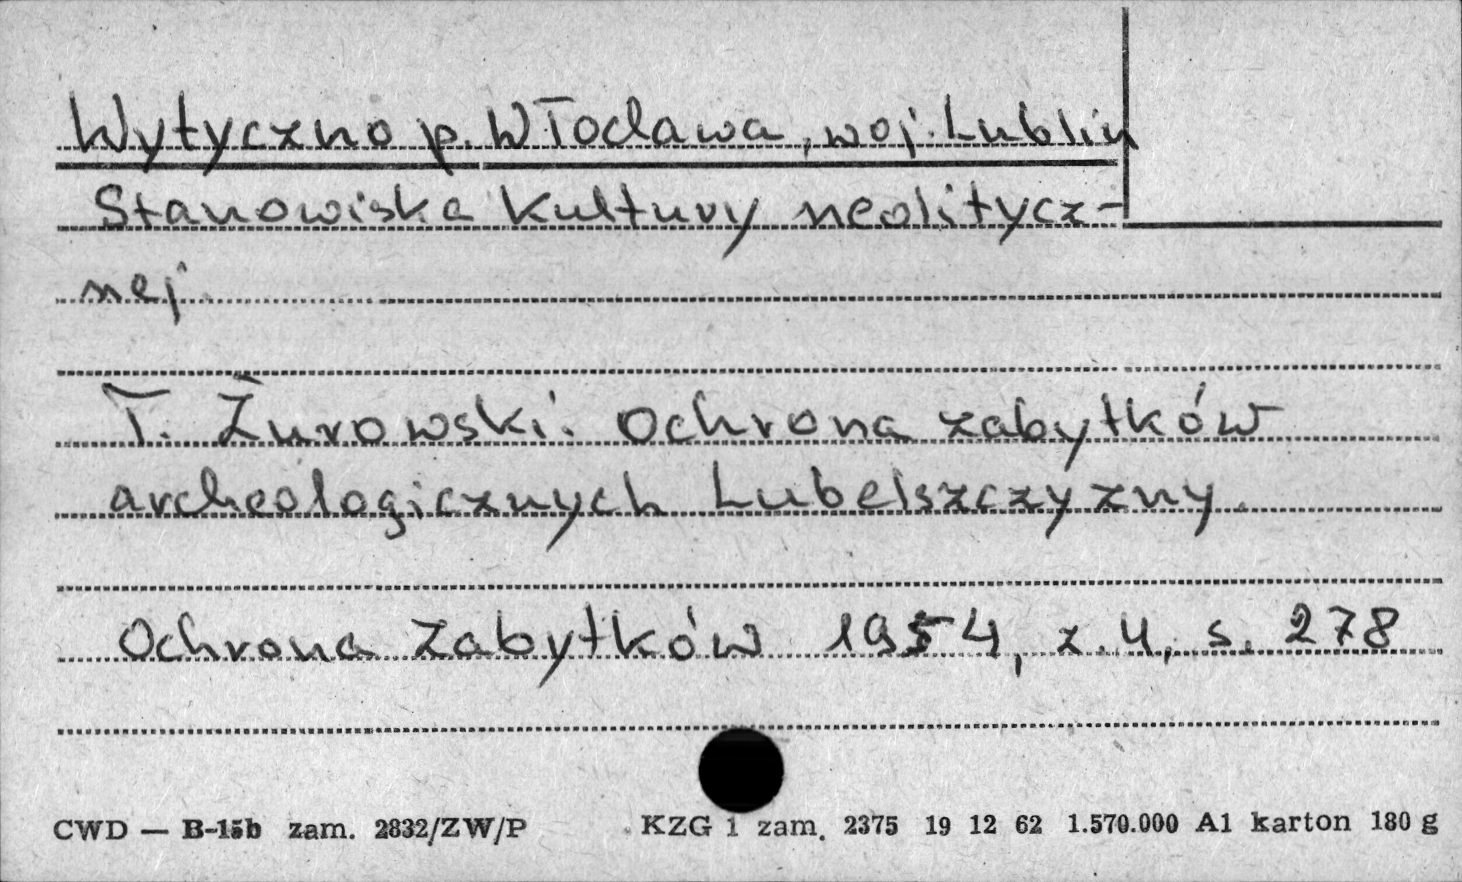 Wytyczno p. Włodawa, woj. Lublin
Stanowiska kultury neolitycz-
nej.
T. Żurowski: Ochrona zabytków
archeologicznych Lubelszczyzny.
Ochrona Zabytków 1954, z. 4, s. 278
CWD — B-15b zam. 2832/ZW/P KZG 1 zam. 2375 19 12 62 1.570.000 A1 karton 180 g